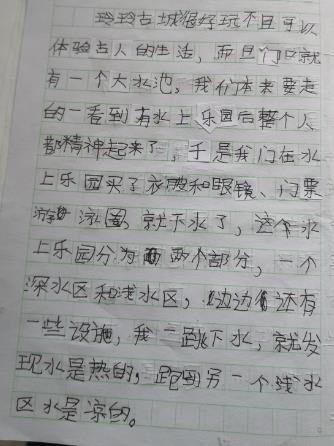 玲玲古城很好玩不旦可以
体验古人的生活，而且门口就
有一个大水池，我们本来要走
的一看到有水上乐园后整个人
都精神起来了，于是我们在水
上乐园买了衣服和眼镜、门票
泳圈，就下水了，这个水
上乐园分为两个部分，一个
深水区和浅水区，边边还有
一些设施，我一跳下水，就发
现水是热的，跑到另一个浅水
区水是凉的。